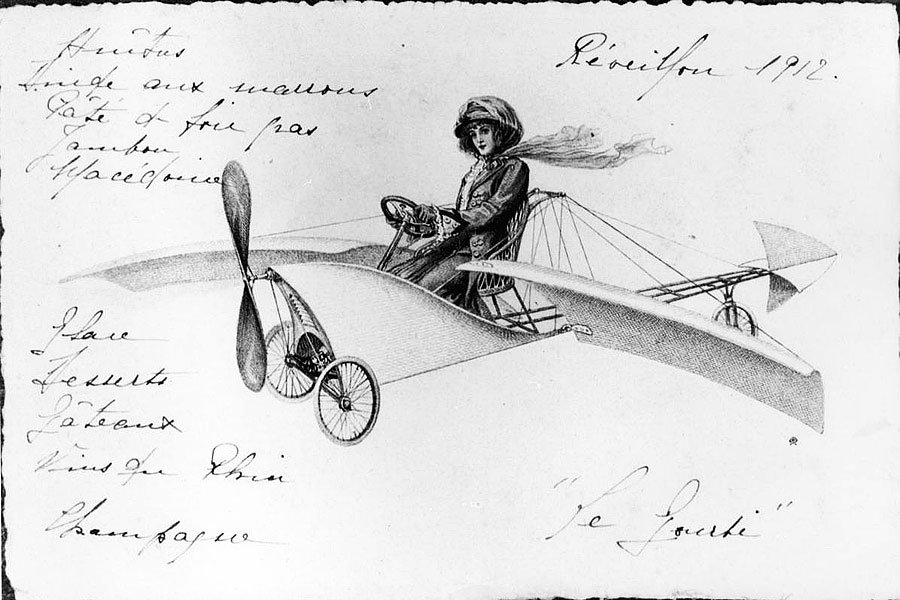 Réveillon 1912.
Huîtres
Dinde aux marrons
Pâté d foie gras
Jambon
Macédoine
Glace
Desserts
Gâteaux
Vins du Rhin
Champagne
"Le Gourbi"